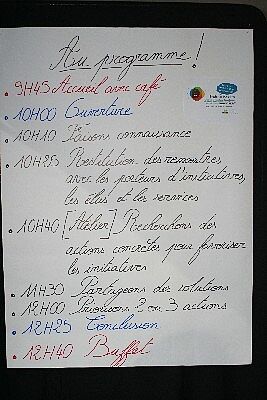 Au programme !
• 9H45 Accueil avec café
• 10H00 Ouverture
• 10H10 Faisons connaissance
• 10H25 Restitution des rencontres
avec les porteurs d'initiatives,
les élus et les services
• 10H40 [Atelier] Recherchons des
actions concrètes pour favoriser
les initiatives
• 11H30 Partageons des solutions
• 12H00 Priorisons 2 ou 3 actions
• 12H25 Conclusion
• 12H40 Buffet